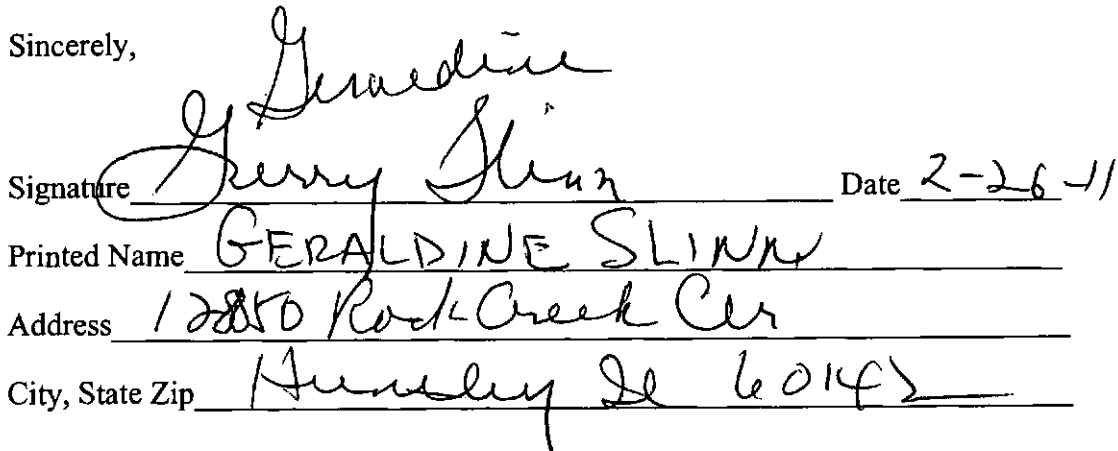 Sincerely,
Geraldine
Signature Gerry Slinn Date 2-26-11
Printed Name GERALDINE SLINN
Address 12850 Rock Creek Cir
City, State Zip Huntley Il 60142